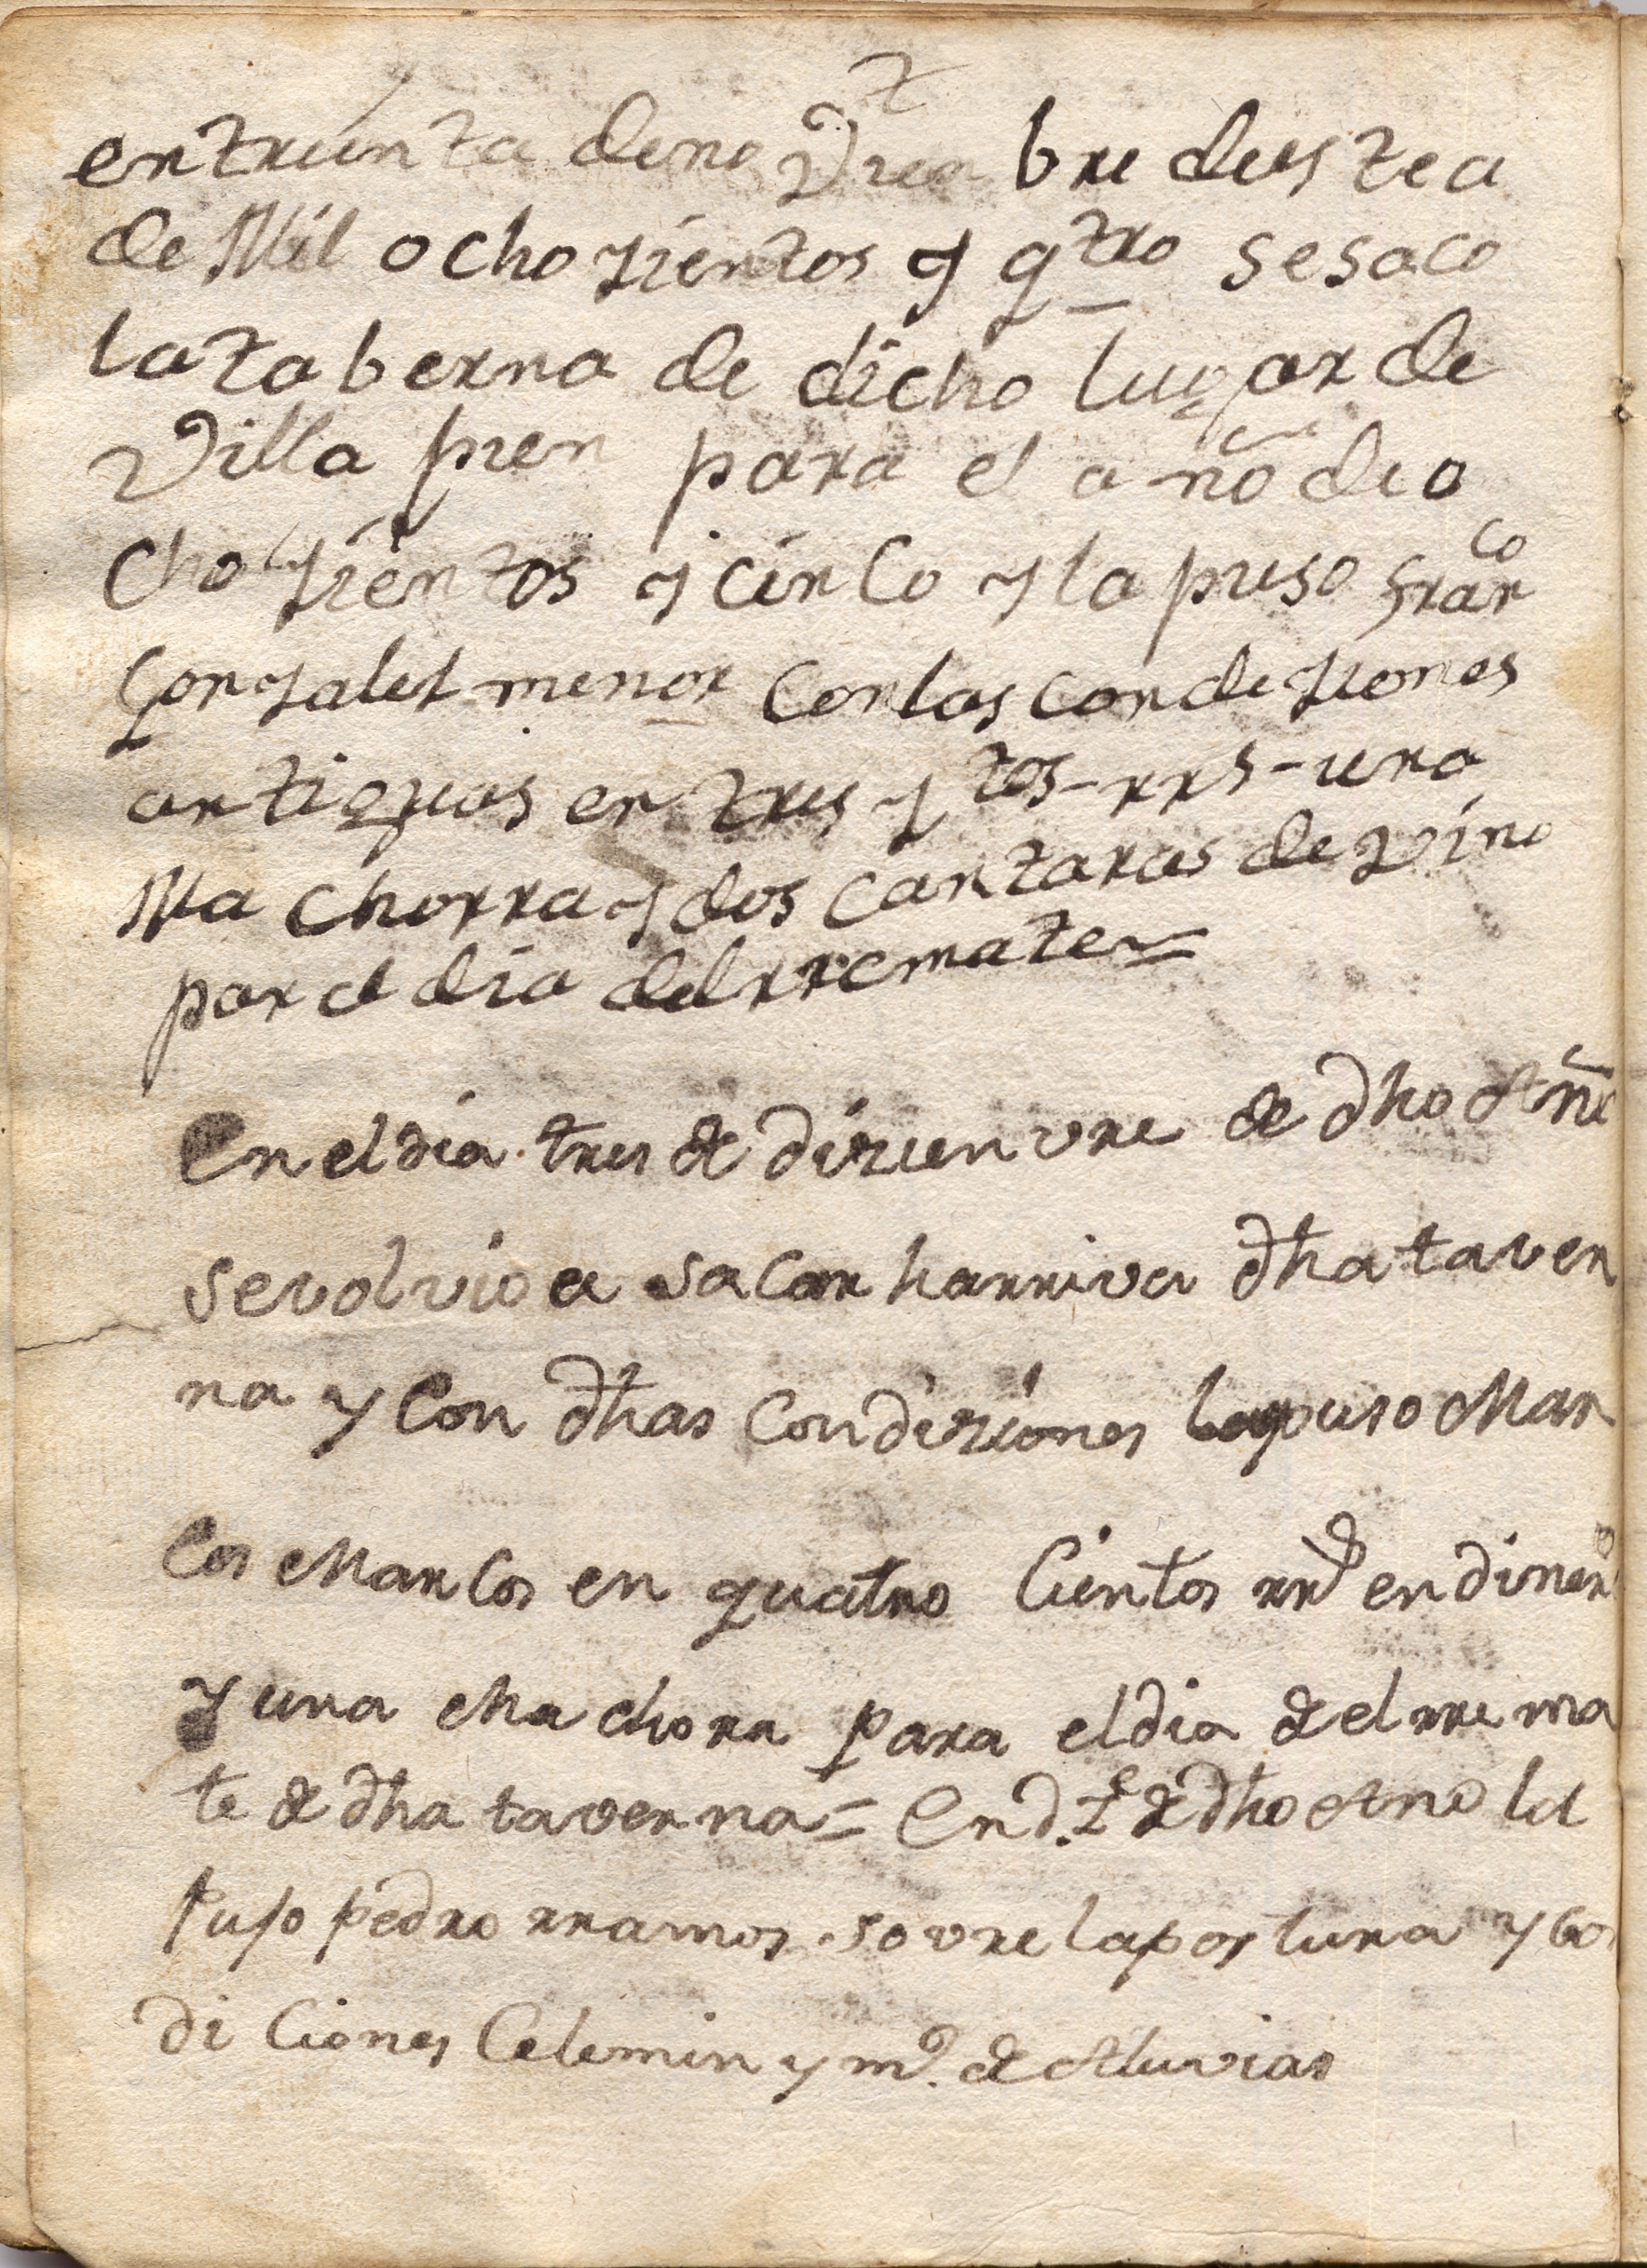 en treinta de novien bre deestea
de Mil ochozientos y qtro sesaco
la taberna de dicho lugar de
Villa pren para el año deo
chozientos y cinco y la puso Franco
Gonzalez menor Conlas condeziones
antiguas en tres ztos rrs una
Machorra y dos Cantaras de vino
para el dia del rremate =
En el dia tres de dizienvre de dho Añe
se volvio a sacar harriva dha taver
na y Con dhas Condiziones la puso Mar
Cos Marcos en quatro Cientos rrs en diner
y una Machora para el dia de el rrema
te de dha taverna = En d. de dho Ano la
puso pedro rramos sovre la postura y Co
di Ciones Celemin y mo. de Aluvias